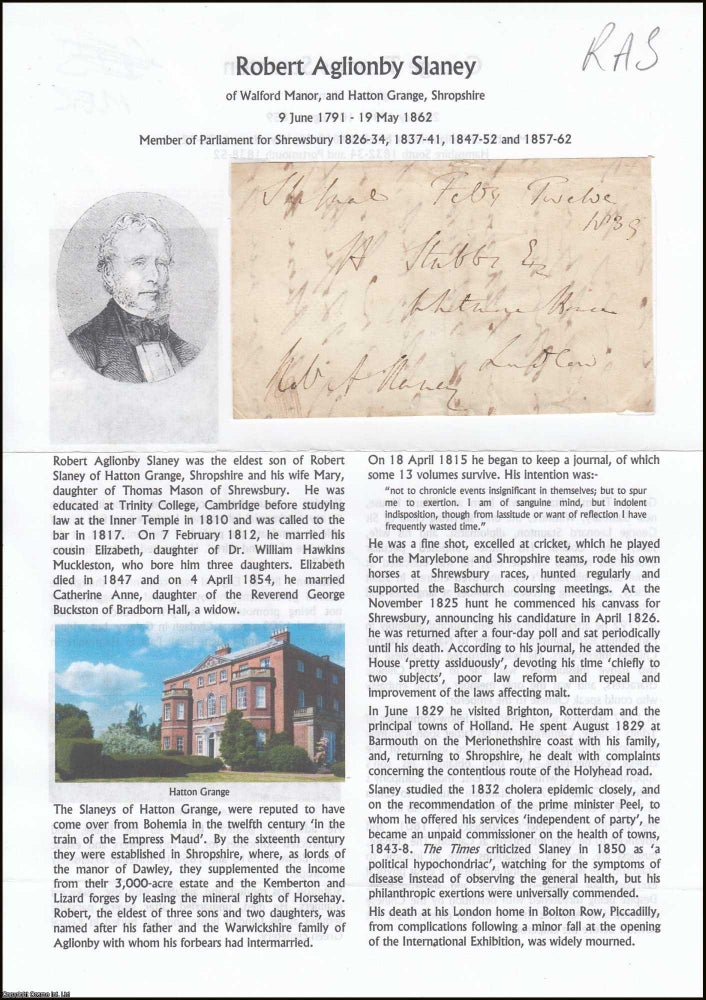 RAS
Robert Aglionby Slaney
of Walford Manor, and Hatton Grange, Shropshire
9 June 1791 - 19 May 1862
Member of Parliament for Shrewsbury 1826-34, 1837-41, 1847-52 and 1857-62
Feby Twelve
Stubbs Esq
Ludlow
Robt A Slaney
Robert Aglionby Slaney was the eldest son of Robert
Slaney of Hatton Grange, Shropshire and his wife Mary,
daughter of Thomas Mason of Shrewsbury. He was
educated at Trinity College, Cambridge before studying
law at the Inner Temple in 1810 and was called to the
bar in 1817. On 7 February 1812, he married his
cousin Elizabeth, daughter of Dr. William Hawkins
Muckleston, who bore him three daughters. Elizabeth
died in 1847 and on 4 April 1854, he married
Catherine Anne, daughter of the Reverend George
Buckston of Bradborn Hall, a widow.
Hatton Grange
The Slaneys of Hatton Grange, were reputed to have
come over from Bohemia in the twelfth century 'in the
train of the Empress Maud'. By the sixteenth century
they were established in Shropshire, where, as lords of
the manor of Dawley, they supplemented the income
from their 3,000-acre estate and the Kemberton and
Lizard forges by leasing the mineral rights of Horsehay.
Robert, the eldest of three sons and two daughters, was
named after his father and the Warwickshire family of
Aglionby with whom his forbears had intermarried.
On 18 April 1815 he began to keep a journal, of which
some 13 volumes survive. His intention was:-
"not to chronicle events insignificant in themselves; but to spur
me to exertion. I am of sanguine mind, but indolent
indisposition, though from lassitude or want of reflection I have
frequently wasted time."
He was a fine shot, excelled at cricket, which he played
for the Marylebone and Shropshire teams, rode his own
horses at Shrewsbury races, hunted regularly and
supported the Baschurch coursing meetings. At the
November 1825 hunt he commenced his canvass for
Shrewsbury, announcing his candidature in April 1826.
he was returned after a four-day poll and sat periodically
until his death. According to his journal, he attended the
House 'pretty assiduously', devoting his time 'chiefly to
two subjects', poor law reform and repeal and
improvement of the laws affecting malt.
In June 1829 he visited Brighton, Rotterdam and the
principal towns of Holland. He spent August 1829 at
Barmouth on the Merionethshire coast with his family,
and, returning to Shropshire, he dealt with complaints
concerning the contentious route of the Holyhead road.
Slaney studied the 1832 cholera epidemic closely, and
on the recommendation of the prime minister Peel, to
whom he offered his services 'independent of party', he
became an unpaid commissioner on the health of towns,
1843-8. The Times criticized Slaney in 1850 as 'a
political hypochondriac', watching for the symptoms of
disease instead of observing the general health, but his
philanthropic exertions were universally commended.
His death at his London home in Bolton Row, Piccadilly,
from complications following a minor fall at the opening
of the International Exhibition, was widely mourned.
Copyright Cosmo Int. Ltd